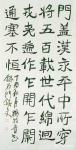 門蓋漢永平中所穿
將五百載世代綿迴
戎夷遞作乍開乍閉
通塞不恒